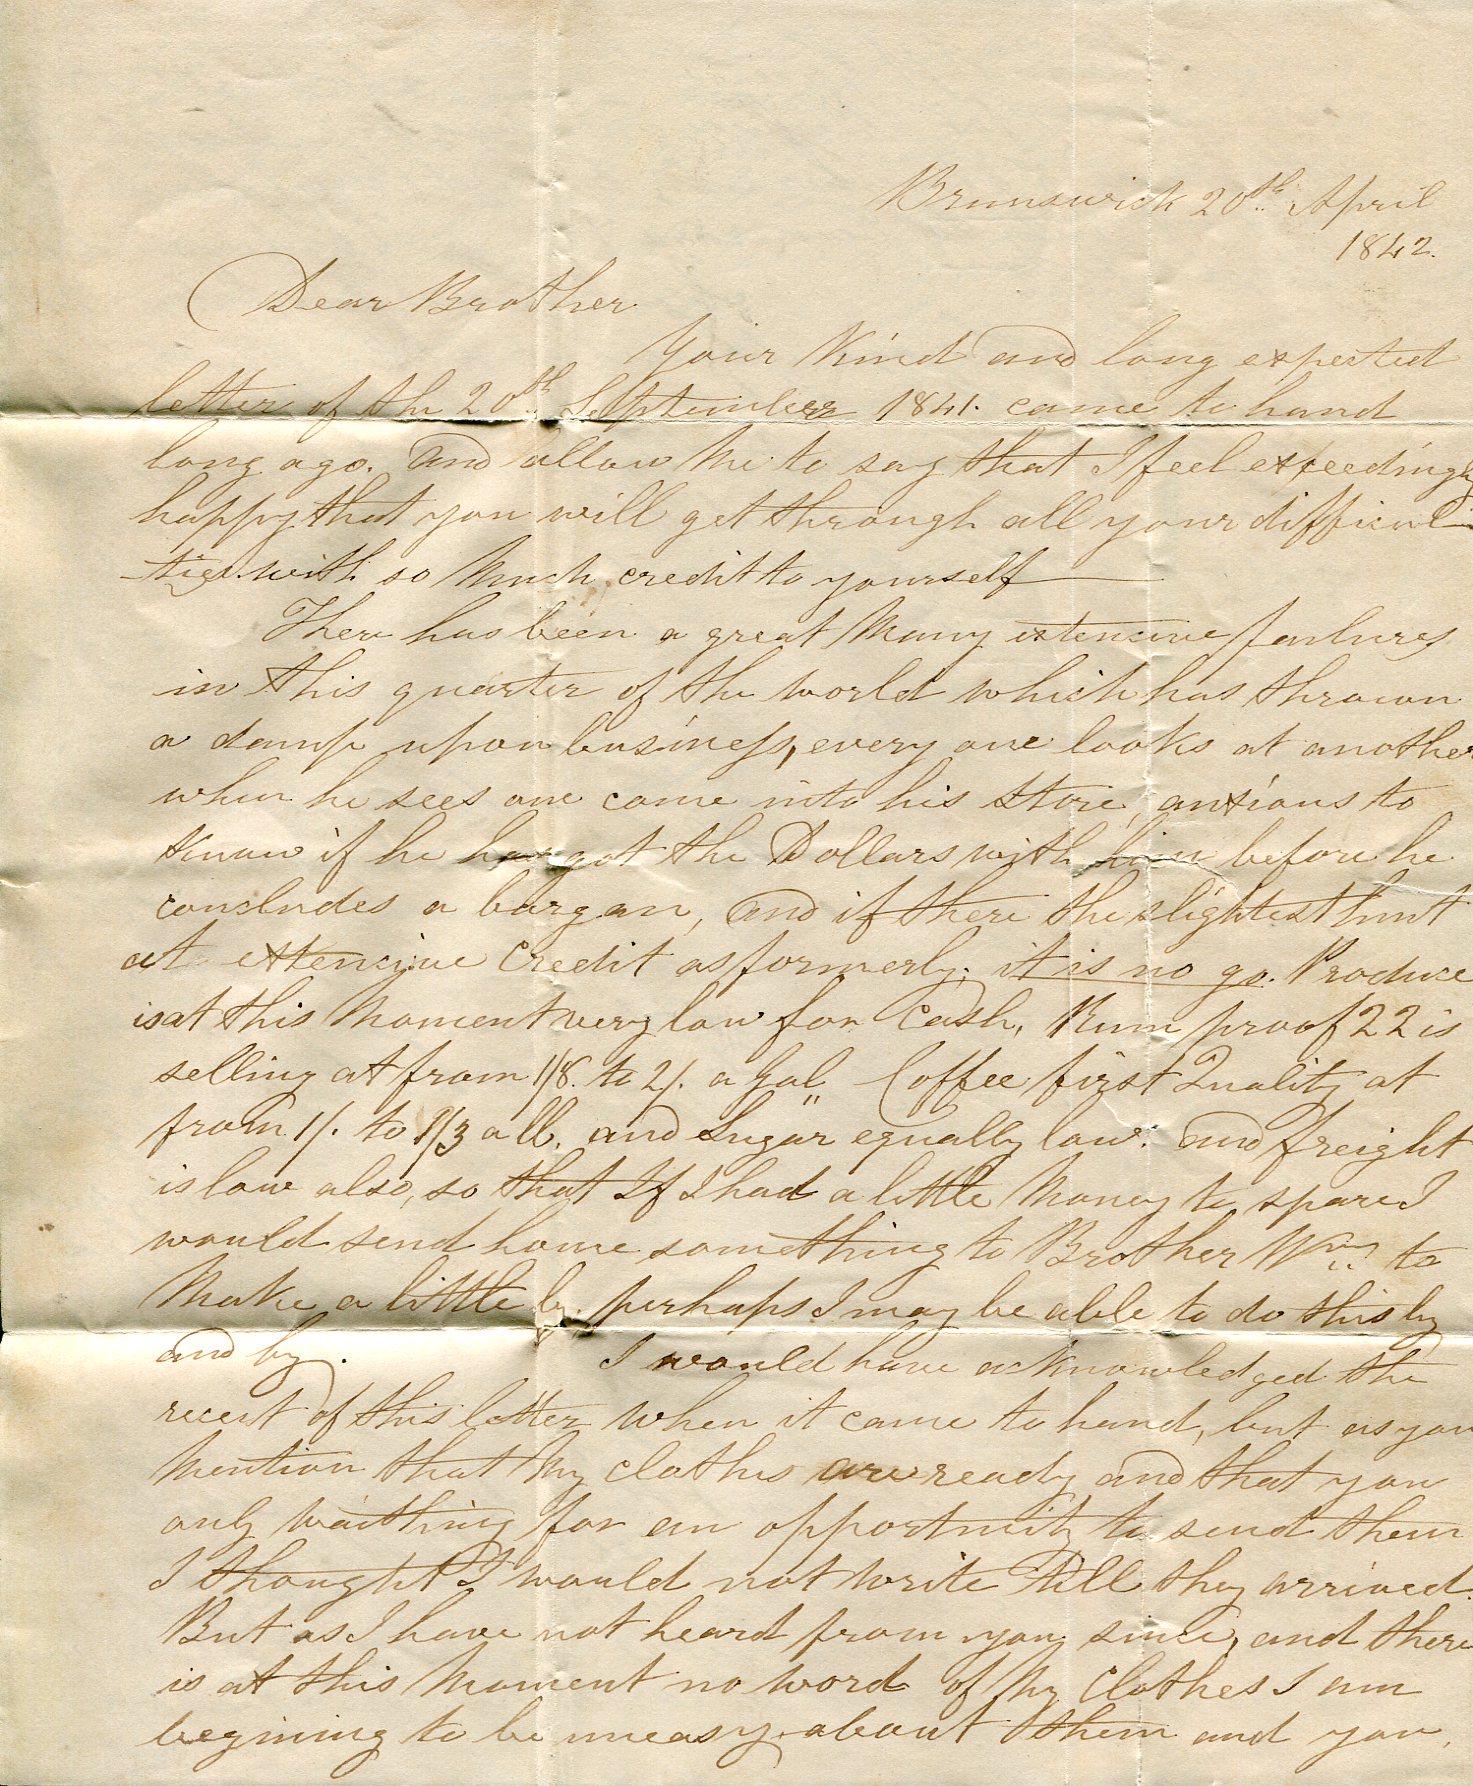 Brunswick 20th April
1842.
Dear Brother
Your Kind and long expected
letter of the 20th September 1841. came to hand
long ago. and allow Me to say that I feel exceedingly
happy that you will get through all your difficul
-ties with so Much credit to yourself
There has been a great Many extencive failures
in this quarter of the World which has thrown
a damp upon business, every one looks at another
when he sees one come into his Store, anxious to
Know if he has got the Dollars with him before he
concludes a bargan, and if there the slightest hint
at extencive Credit as formerly. it is no go. Produce
is at this Moment very low for Cash, Rum proof 22 is
selling at from 1/8. to 2/. a Gal,, Coffee first Quality at
from 1/. to 1/3 a lb. and Sugar equally low. and freight
is low also, so that If I had a little Money to spare I
would send home something to Brother Wm. to
Make a little by. perhaps I may be able to do this by
and by. I would have acknowledged the
receit of this letter When it came to hand, but as you
Mention that My Cloths are ready and that you
only waithing for an opportunity to send them
I thought I would not Write till they arrived.
But as I have not heard from you since, and there
is at this Moment no Word of My Clothes I am
begining to be uneasy about them and you,